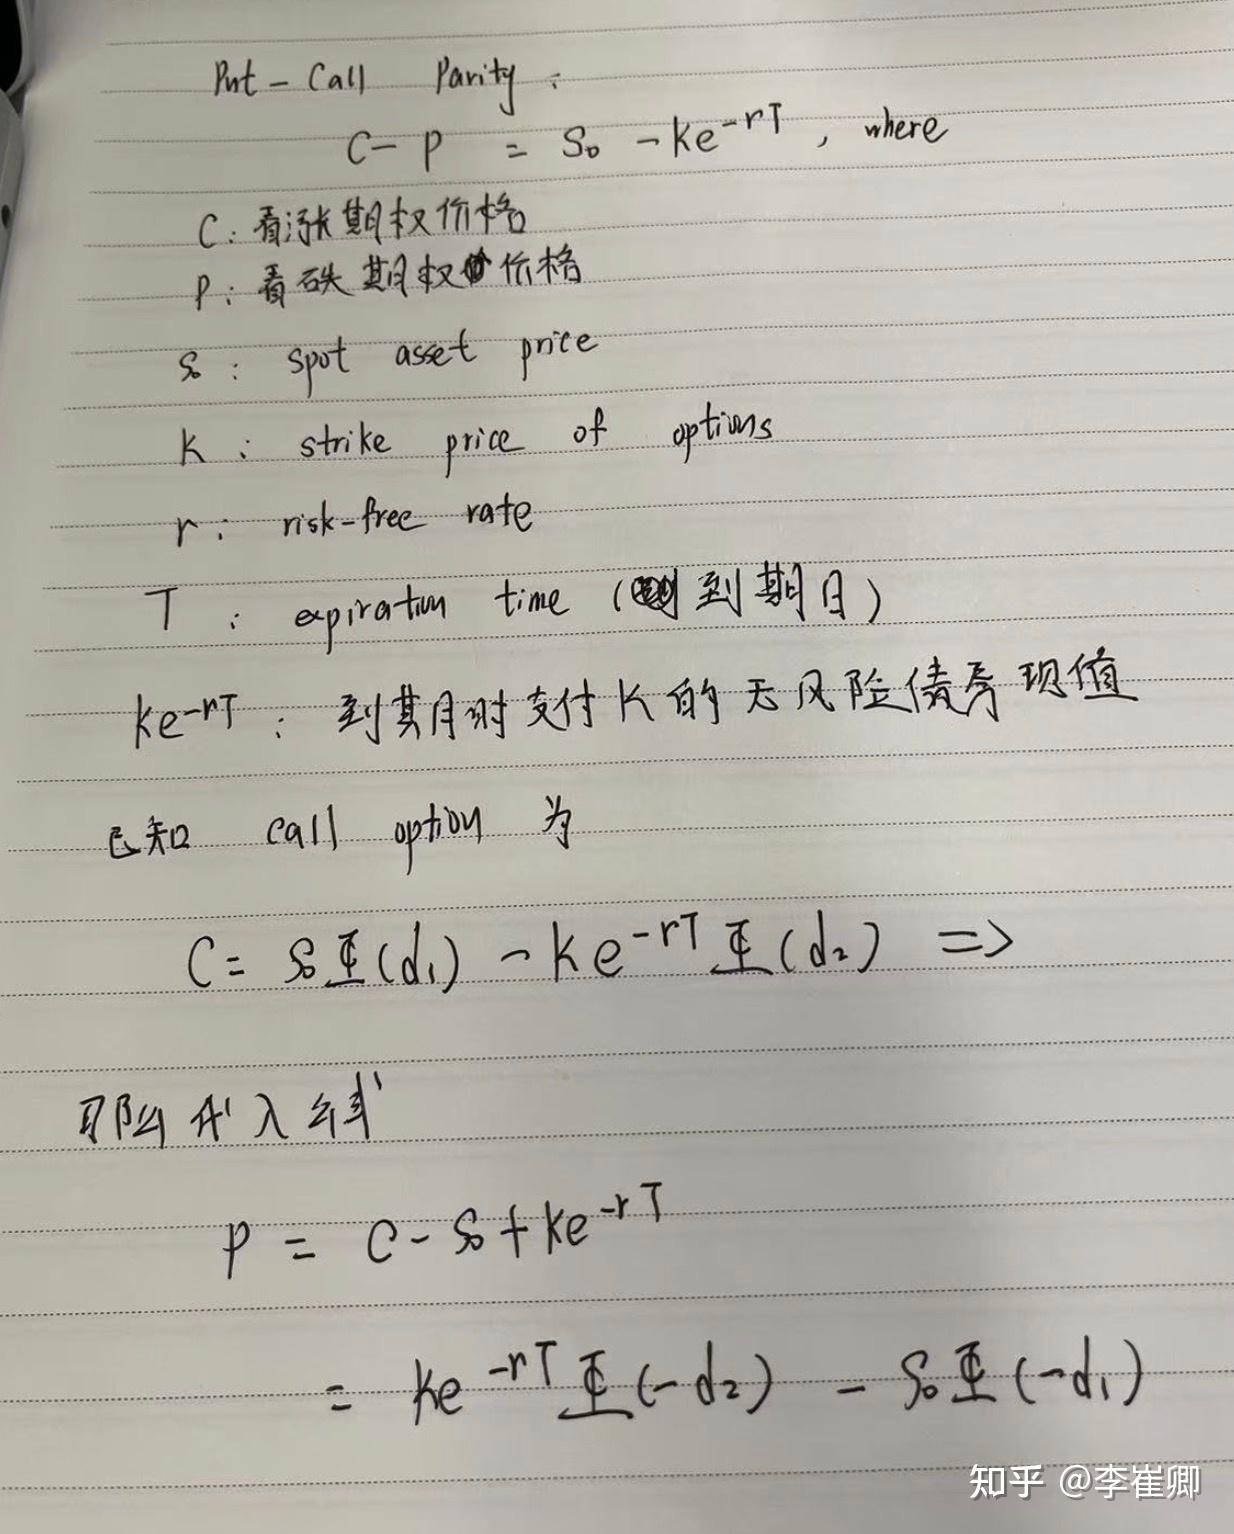 Put-Call Parity:
C-P = S₀ -Ke^{-rT}, where
C: 看涨期权价格
P: 看跌期权价格
S₀: spot asset price
K: strike price of options
r: risk-free rate
T: expiration time (到期日)
Ke^{-rT}: 到期时支付K的无风险债券现值
已知 call option 为
C= S₀Φ(d₁) -Ke^{-rT}Φ(d₂) =>
那么代入得
P = C-S₀+Ke^{-rT}
= Ke^{-rT}Φ(-d₂) - S₀Φ(-d₁)
知乎 @李崔卿